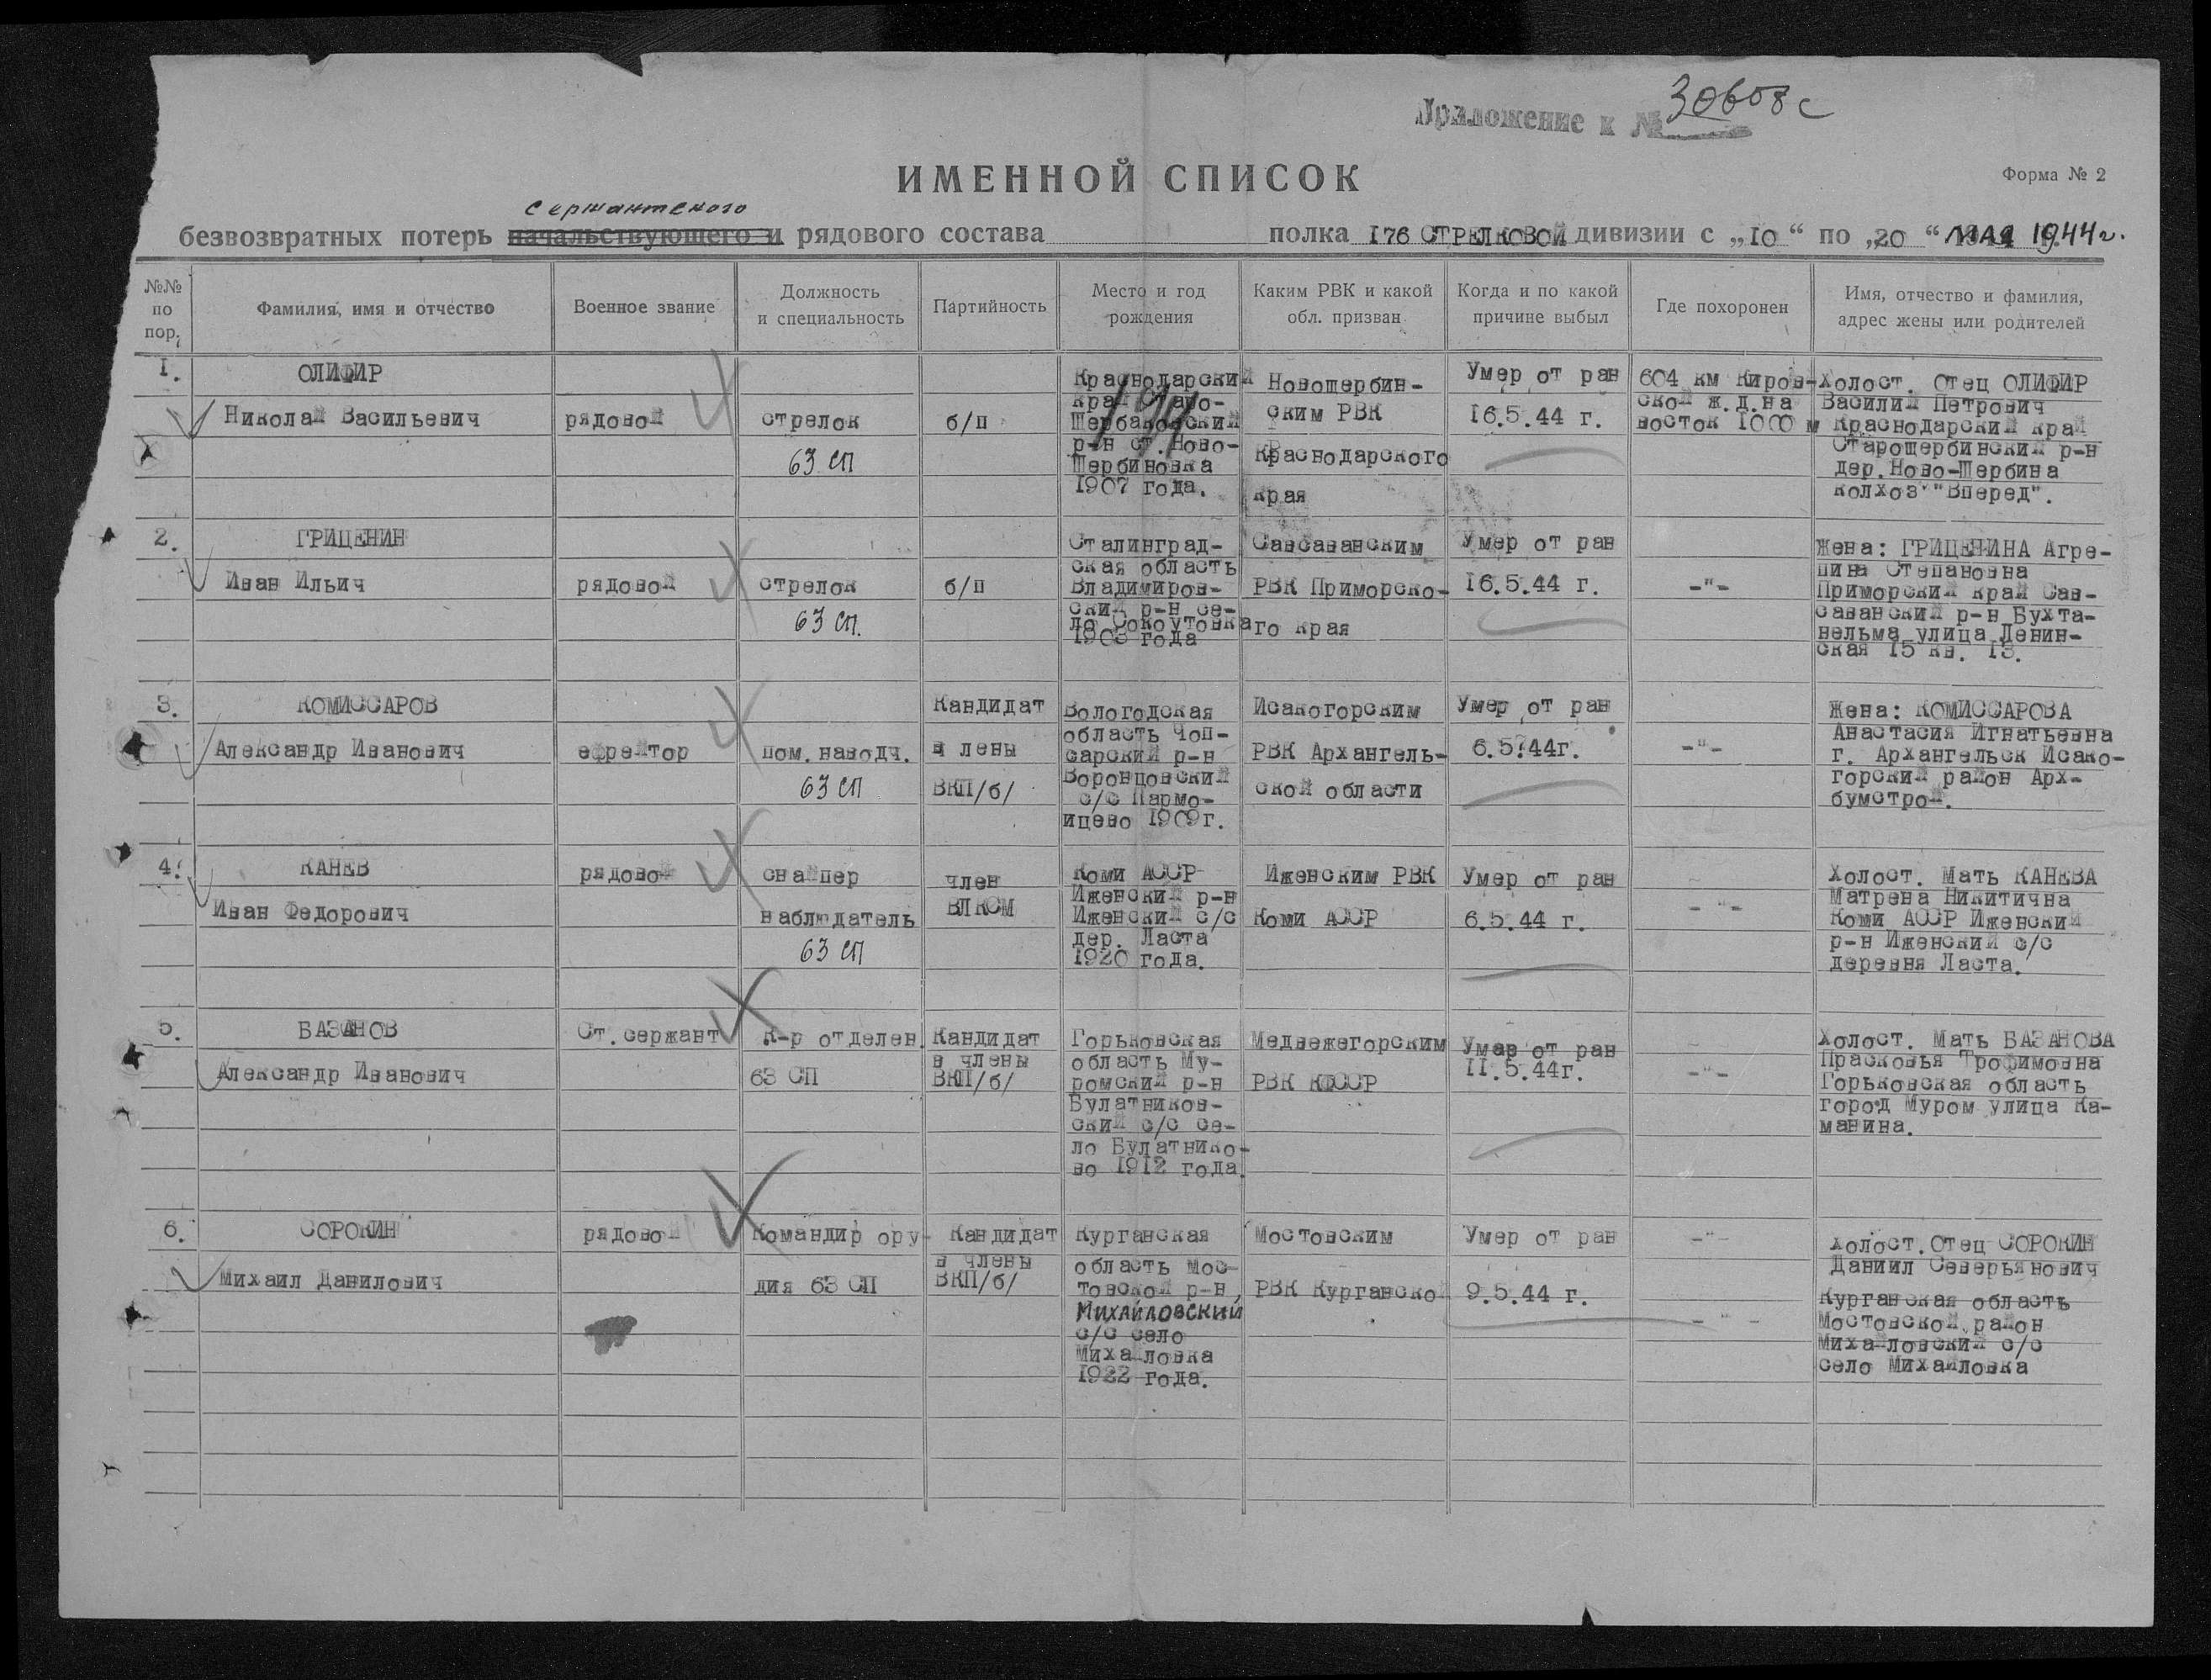 Приложение к № 30608с
ИМЕННОЙ СПИСОК
Форма № 2
сержантского
безвозвратных потерь начальствующего и рядового состава полка 176 СТРЕЛКОВОЙ дивизии с „10“ по „20“ МАЯ 1944 г.
№№ по пор.
Фамилия, имя и отчество
Военное звание
Должность и специальность
Партийность
Место и год рождения
Каким РВК и какой обл. призван
Когда и по какой причине выбыл
Где похоронен
Имя, отчество и фамилия, адрес жены или родителей
1.
ОЛИФИР
Николай Васильевич
рядовой
стрелок
63 СП
б/п
Краснодарский
край Старо-
Щербаковский
р-н ст.Ново-
Щербиновка
1907 года.
Новощербин-
ским РВК
Краснодарского
края
Умер от ран
16.5.44 г.
604 км Киров-
ской ж.д.на
восток 1000 м
Холост. Отец ОЛИФИР
Василий Петрович
Краснодарский край
Старощербинский р-н
дер.Ново-Щербина
колхоз "Вперед".
2.
ГРИЦЕНИН
Иван Ильич
рядовой
стрелок
63 СП.
б/п
Сталинград-
ская область
Владимиров-
ский р-н се-
ло Сокоутовка
1903 года
Савсаванским
РВК Приморско-
го края
Умер от ран
16.5.44 г.
-"-
Жена: ГРИЦЕНИНА Агре-
пина Степановна
Приморский край Сав-
саванский р-н Бухта-
нельма улица Ленин-
ская 15 кв. 13.
3.
КОМИССАРОВ
Александр Иванович
ефрейтор
пом.наводч.
63 СП
Кандидат
в члены
ВКП/б/
Вологодская
область Чоп-
сарский р-н
Воронцовский
с/с Пармо-
ицево 1909г.
Исакогорским
РВК Архангель-
ской области
Умер от ран
6.5.44г.
-"-
Жена: КОМИССАРОВА
Анастасия Игнатьевна
г. Архангельск Исако-
горский район Арх-
бумстрой.
4.
КАНЕВ
Иван Федорович
рядовой
снайпер
наблюдатель
63 СП
член
ВЛКСМ
Коми АССР
Иженский р-н
Иженский с/с
дер. Ласта
1920 года.
Иженским РВК
Коми АССР
Умер от ран
6.5.44 г.
-"-
Холост. Мать КАНЕВА
Матрена Никитична
Коми АССР Иженский
р-н Иженский с/с
деревня Ласта.
5.
БАЗАНОВ
Александр Иванович
Ст.сержант
К-р отделен.
63 СП
Кандидат
в члены
ВКП/б/
Горьковская
область Му-
ромский р-н
Булатников-
ский с/с се-
ло Булатнико-
во 1912 года.
Медвежегорским
РВК КФССР
Умер от ран
11.5.44г.
-"-
Холост. Мать БАЗАНОВА
Прасковья Трофимовна
Горьковская область
город Муром улица Ка-
манина.
6.
СОРОКИН
Михаил Данилович
рядовой
Командир ору-
дия 63 СП
Кандидат
в члены
ВКП/б/
Курганская
область Мос-
товской р-н,
МИХАЙЛОВСКИЙ
с/с село
Михайловка
1922 года.
Мостовским
РВК Курганской
Умер от ран
9.5.44 г.
-"-
-"-
Холост.Отец СОРОКИН
Даниил Северьянович
Курганская область
Мостовской район
Михайловский с/с
село Михайловка